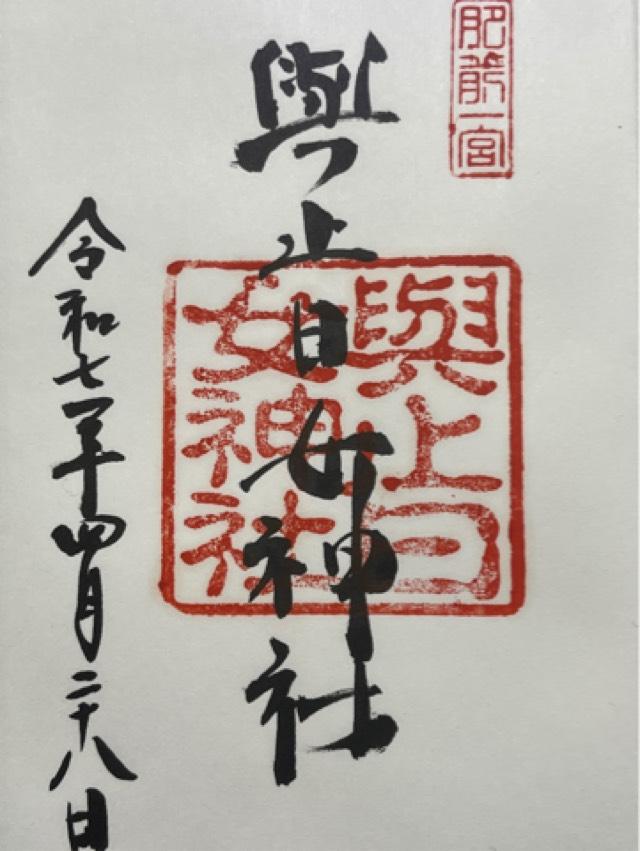 肥前一宮
與止日女神社
與上日
女神社
令和七年四月二十八日